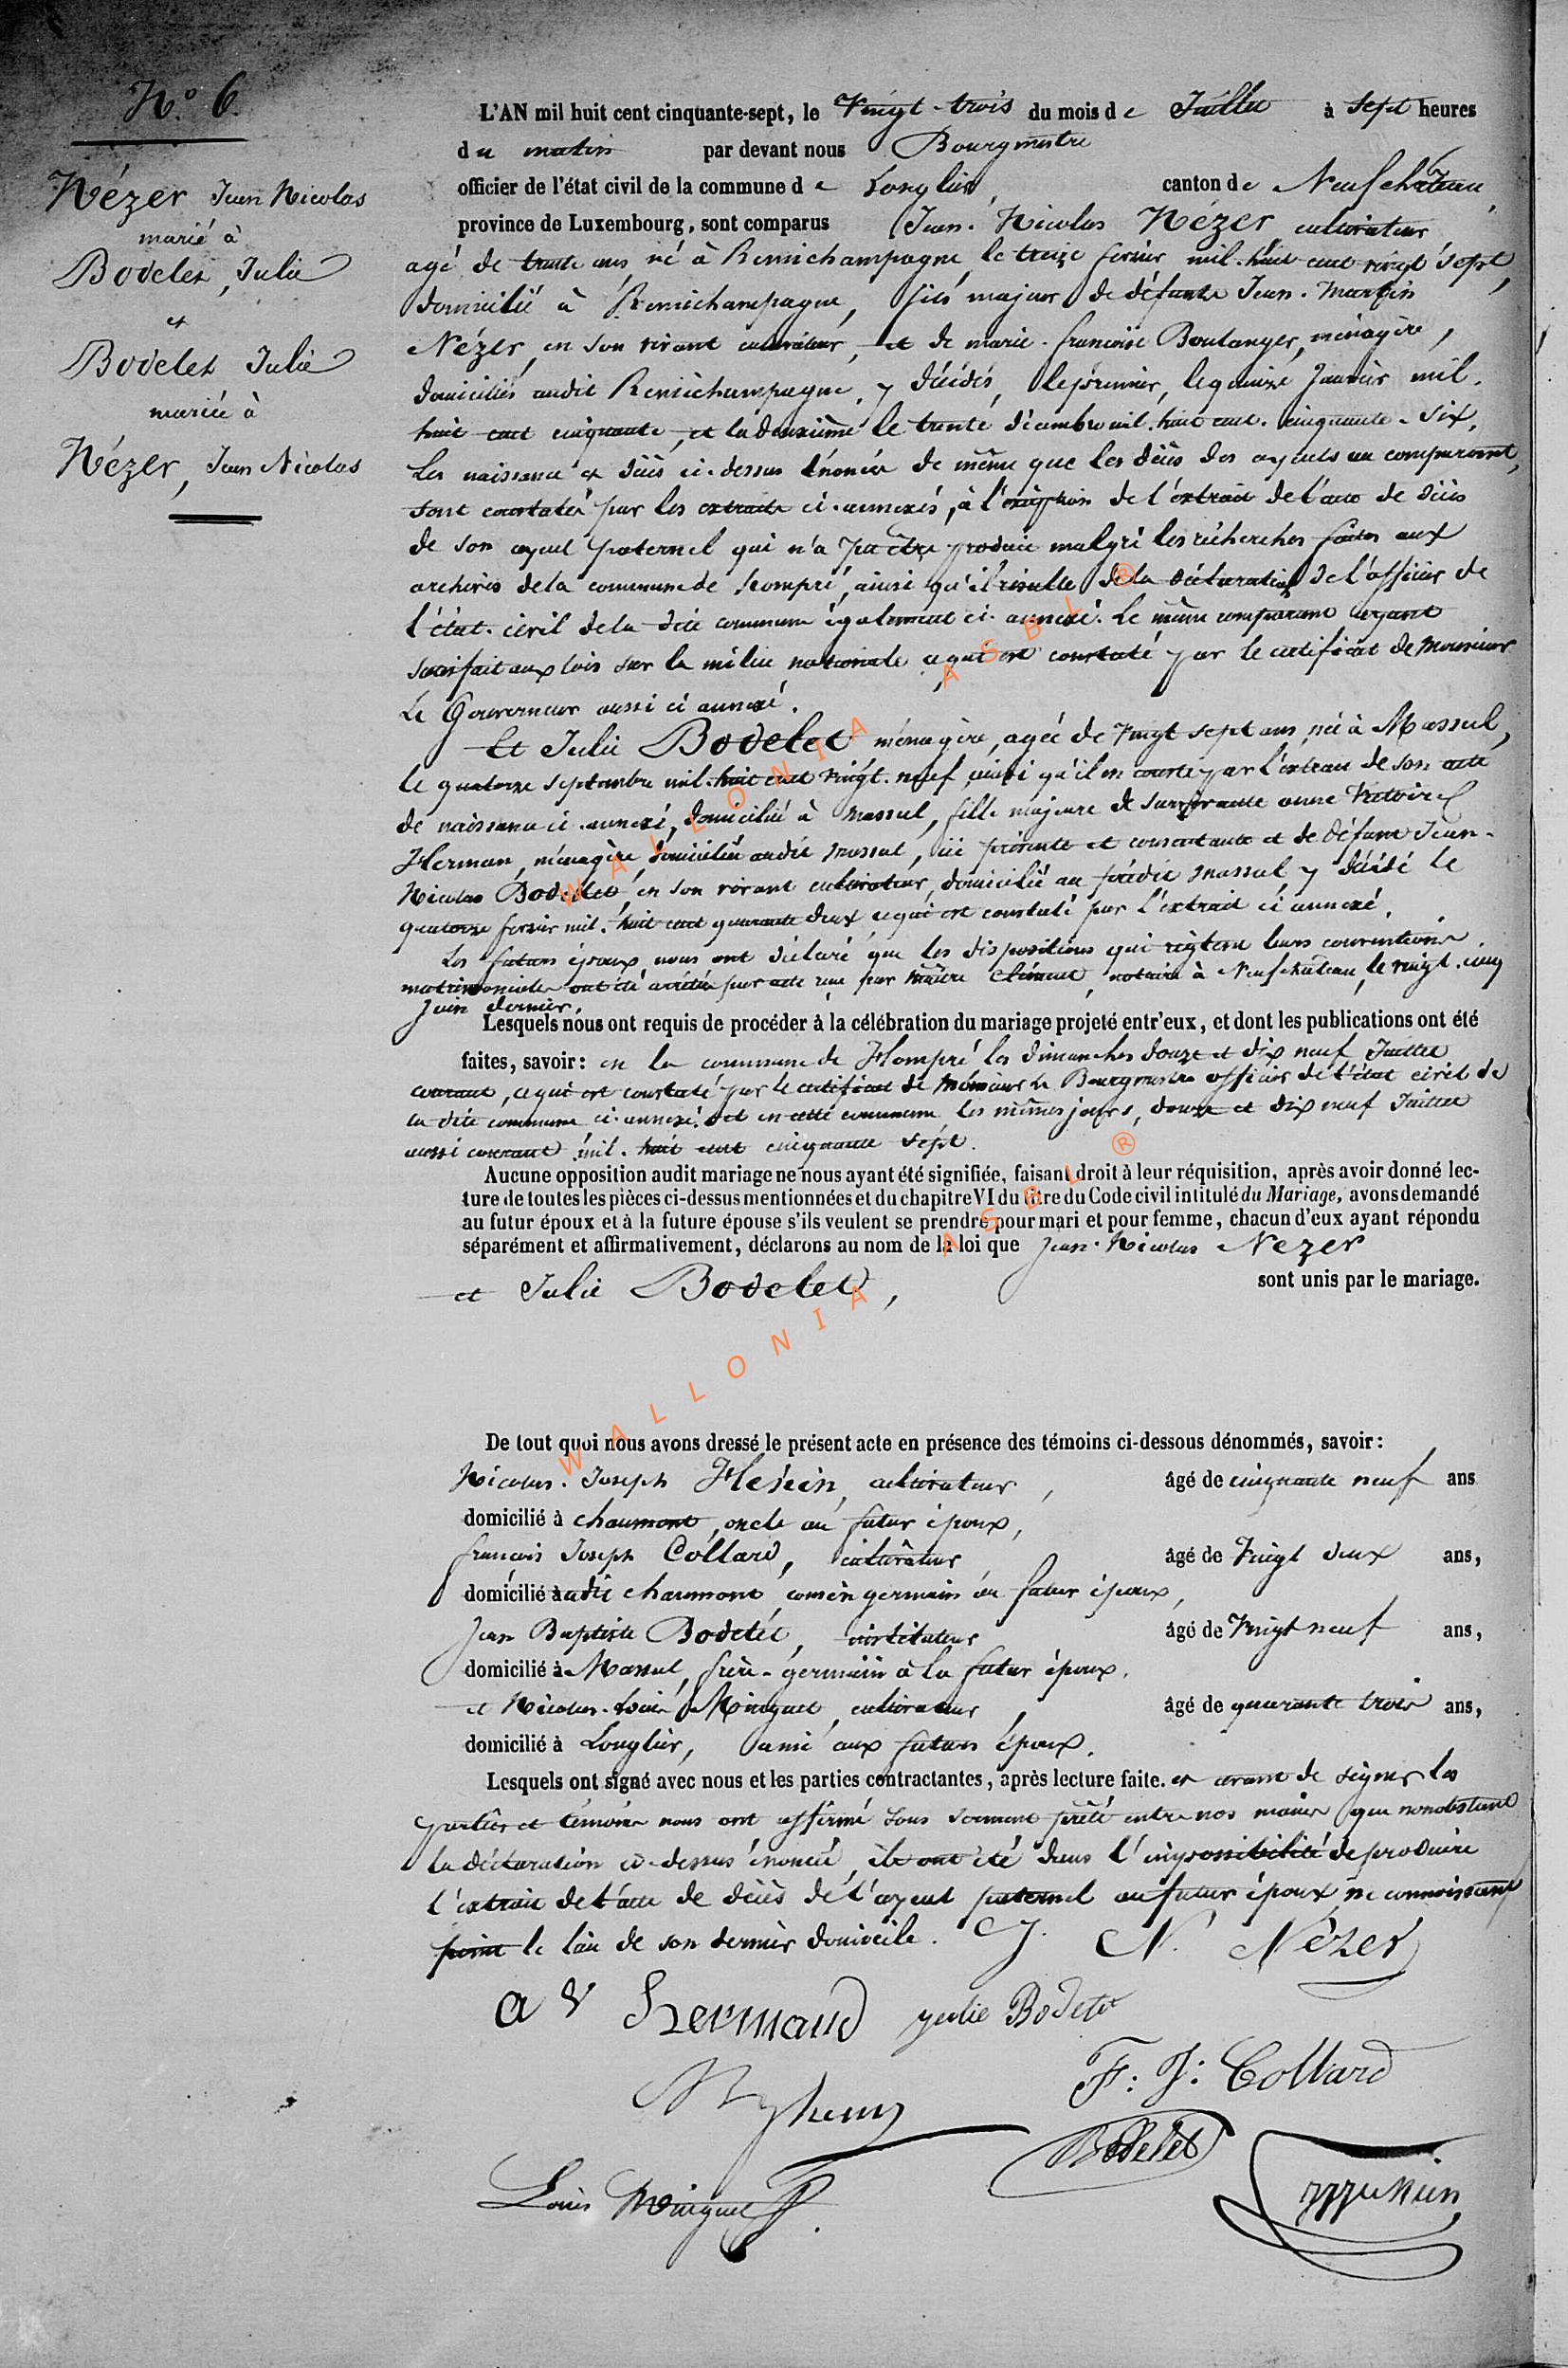 N° 6.
Nézer Jean Nicolas
marié à
Bodelet, Julie
et
Bodelet Julie
mariée à
Nézer, Jean Nicolas
L'AN mil huit cent cinquante-sept, le Vingt-trois du mois de Juillet à sept heures
du matin par devant nous Bourgmestre
officier de l'état civil de la commune de Longlier, canton de Neufchâteau,
province de Luxembourg, sont comparus Jean-Nicolas Nézer cultivateur
agé de trente ans, né à Remichampagne le treize fevrier mil-huit cent vingt sept,
domicilié à Remichampagne, fils majeur de défunts Jean-Martin
Nézer, en son vivant cultivateur, et de marie-francoise Boulanger, ménagère,
domiciliés audit Remichampagne, y décédés, le premier, le quinze Janvier mil-
huit cent cinquante, et la deuxième le trente décembre mil-huit cent-cinquante-six.
Les naissance et décès ci-dessus énoncés de même que les décès des ayeuls au comparant,
sont constatés par les extraits ci-annexés, à l'exception de l'extrait de l'acte de décès
de son ayeul paternel qui n'a pu être produit malgré les recherches faites aux
archives de la commune de hompré, ainsi qu'il résulte de la déclaration de l'officier de
l'état-civil de la dite commune également ci-annexé. Le même comparant ayant
satisfait aux lois sur la milice nationale ce qui est constaté par le certificat de Monsieur
Le Gouverneur aussi ci annexé.
Et Julie Bodelet ménagère, agée de vingt sept ans, née à Massul,
le quatorze septembre mil-huit cent vingt-neuf, ainsi qu'il en conste par l'extrait de son acte
de naissance ci-annexé, domiciliée à Massul, fille majeure de survivante anne Victoire
Herman, ménagère domiciliée audit Massul, ici présente et consentante et de défunt Jean-
Nicolas Bodelet, en son vivant cultivateur, domicilié au prédit Massul y décédé le
quatorze fevrier mil-huit cent quarante deux ce qui est constaté par l'extrait ci annexé.
Les futurs époux nous ont déclaré que les dispositions qui règlent leurs conventions
matrimoniales ont été arrêtées par acte reçu par Maître Clément, notaire à Neufchâteau, le vingt-cinq
Juin dernier.
Lesquels nous ont requis de procéder à la célébration du mariage projeté entr'eux, et dont les publications ont été
faites, savoir: en la commune de Hompré les dimanches douze et dix neuf Juillet
courant, ce qui est constaté par le certificat de Monsieur le Bourgmestre officier de l'état civil de
la dite commune ci-annexé et en cette commune les mêmes jours, douze et dix neuf Juillet
aussi courant mil-huit cent cinquante sept.
Aucune opposition audit mariage ne nous ayant été signifiée, faisant droit à leur réquisition, après avoir donné lec-
ture de toutes les pièces ci-dessus mentionnées et du chapitre VI du titre du Code civil intitulé du Mariage, avons demandé
au futur époux et à la future épouse s'ils veulent se prendre pour mari et pour femme, chacun d'eux ayant répondu
séparément et affirmativement, déclarons au nom de la loi que Jean-Nicolas Nezer
et Julie Bodelet, sont unis par le mariage.
De tout quoi nous avons dressé le présent acte en présence des témoins ci-dessous dénommés, savoir:
Nicolas-Joseph cultivateur, âgé de cinquante neuf ans
domicilié à chaumont, oncle au futur époux,
françois Joseph Collard, cultivateur âgé de Vingt deux ans,
domicilié audit chaumont, cousin germain au futur époux,
Jean Baptiste Bodelet, instituteur âgé de Vingt neuf ans,
domicilié à Massul, frère-germain à la futur épouse.
et Nicolas-Louis Minguet, cultivateur, âgé de quarante trois ans,
domicilié à Longlier, ami aux futurs époux.
Lesquels ont signé avec nous et les parties contractantes, après lecture faite. et avant de signer les
parties et témoins nous ont affirmé sous serment prêté entre nos mains que nonobstant
la déclaration ci-dessus énoncée, ils ont été dans l'impossibilité de produire
l'extrait de l'acte de décès de l'ayeul paternel au futur époux, ne connaissant
point le lieu de son dernier domicile. J. N. Nézer
a V hermand julie Bodelet
F: J: Collard
Bodelet
Louis Minguet
WALLONIA ASBL ®
WALLONIA ASBL ®